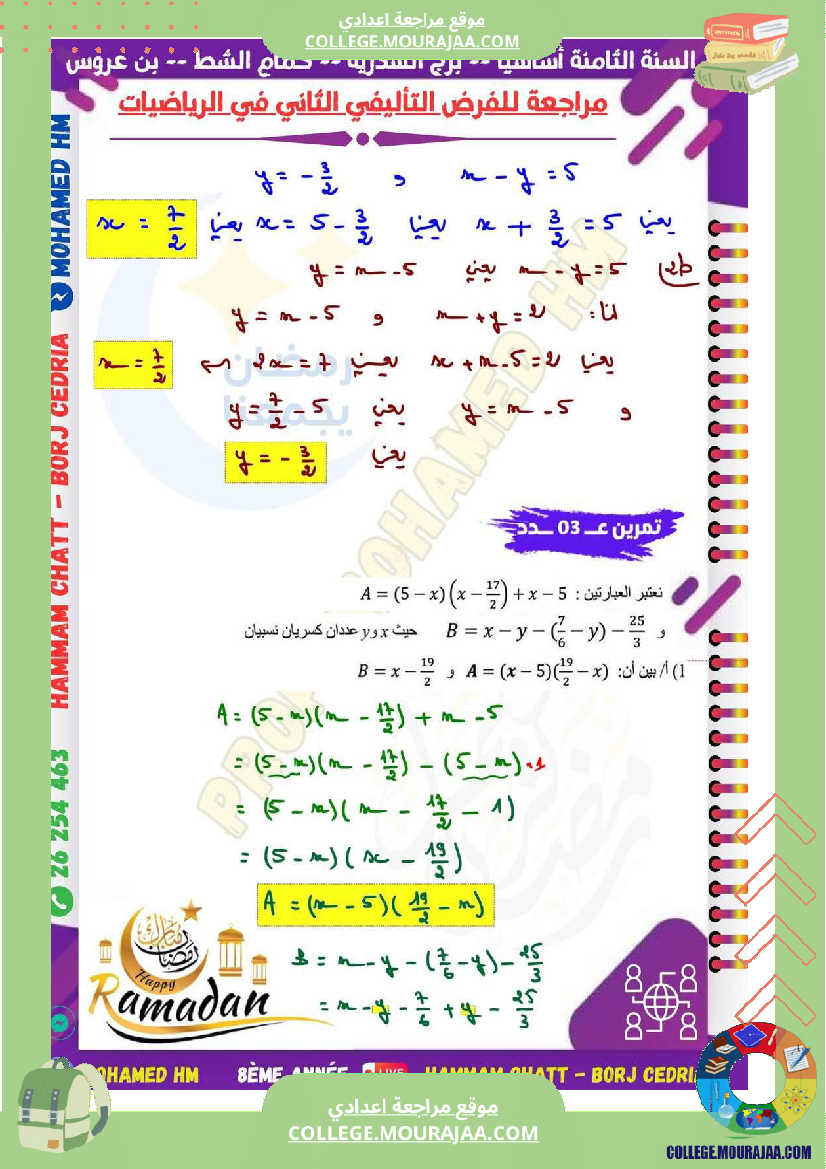 موقع مراجعة اعدادي
COLLEGE.MOURAJAA.COM
السنة الثامنة أساسيا -- برج السدرية -- حمام الشط -- بن عروس
مراجعة للفرض التأليفي الثاني في الرياضيات
x - y = 5 و y = - 3/2
يعني x + 3/2 = 5 يعني x = 5 - 3/2 يعني x = 7/2
2b) x - y = 5 يعني y = x - 5
لنا: x + y = 2 و y = x - 5
يعني x + x - 5 = 2 يعني 2x = 7 ↩ x = 7/2
و y = x - 5 يعني y = 7/2 - 5
يعني y = - 3/2
رمضان
يجمعنا
PROF MOHAMED HM
تمرين عـــ 03 ـــدد
نعتبر العبارتين : A = (5 - x)(x - 17/2) + x - 5
و B = x - y - (7/6 - y) - 25/3 حيث x و y عددان كسريان نسبيان
1) أ/ بين أن: A = (x - 5)(19/2 - x) و B = x - 19/2
A = (5 - x)(x - 17/2) + x - 5
= (5 - x)(x - 17/2) - (5 - x) · 1
= (5 - x)(x - 17/2 - 1)
= (5 - x)(x - 19/2)
A = (x - 5)(19/2 - x)
B = x - y - (7/6 - y) - 25/3
= x - y - 7/6 + y - 25/3
Happy
Ramadan
26 254 463 HAMMAM CHATT - BORJ CEDRIA MOHAMED HM
MOHAMED HM 8ÈME ANNÉE LIVE HAMMAM CHATT - BORJ CEDRIA
موقع مراجعة اعدادي
COLLEGE.MOURAJAA.COM
COLLEGE.MOURAJAA.COM